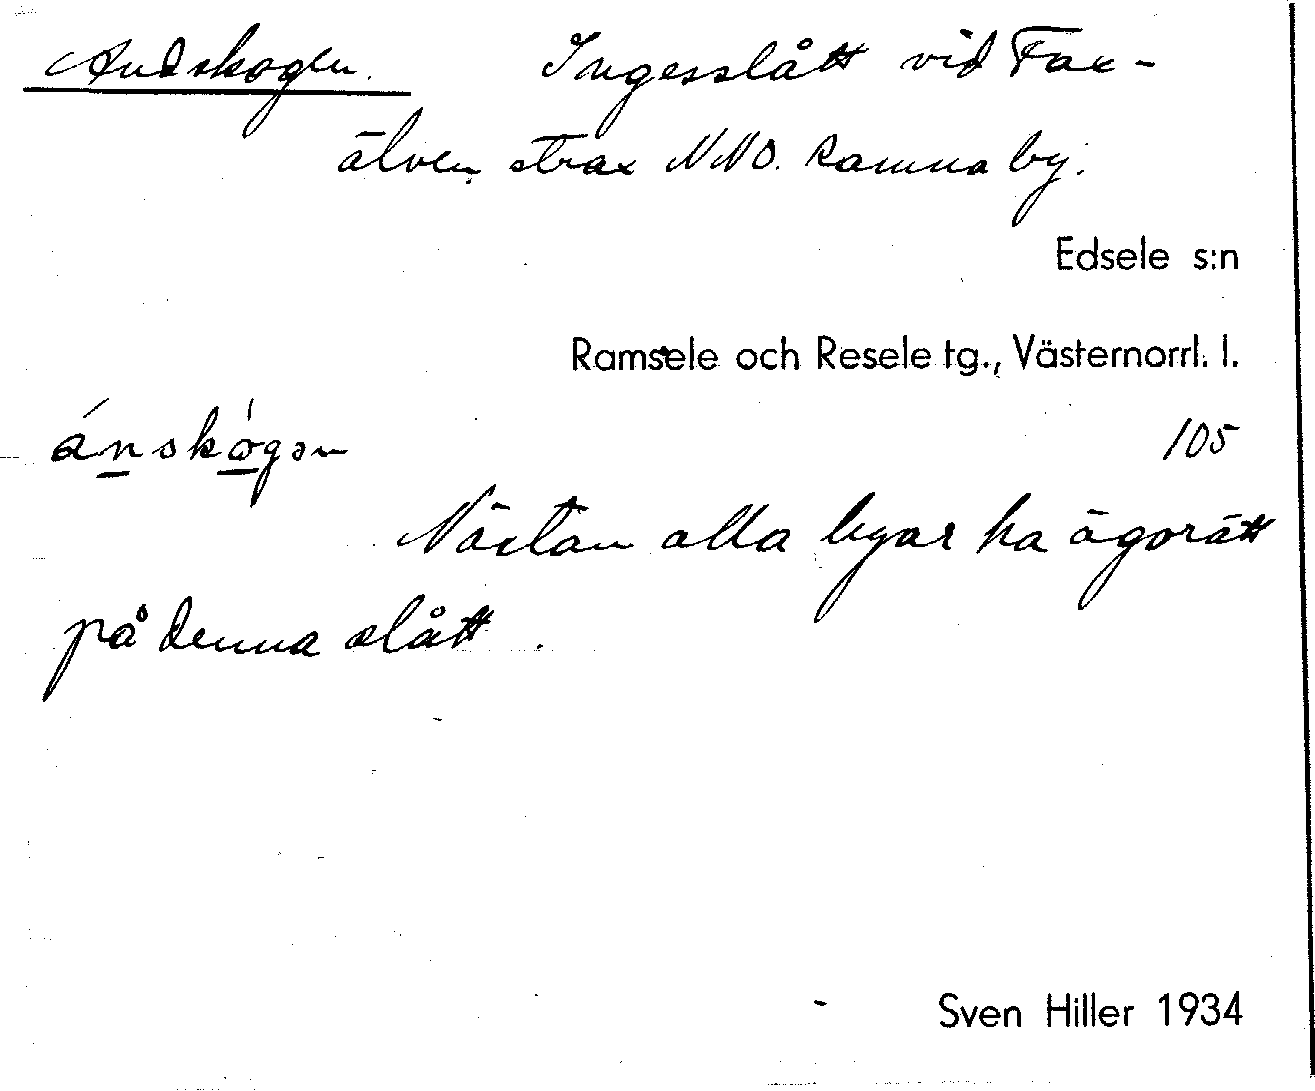 Andskogen. Ingesslått vid Fax-
älven strax NNO. Ramna by.
Edsele s:n
Ramsele och Resele tg., Västernorrl. l.
105
Nästan alla byar ha ägorätt
på denna slått.
Sven Hiller 1934